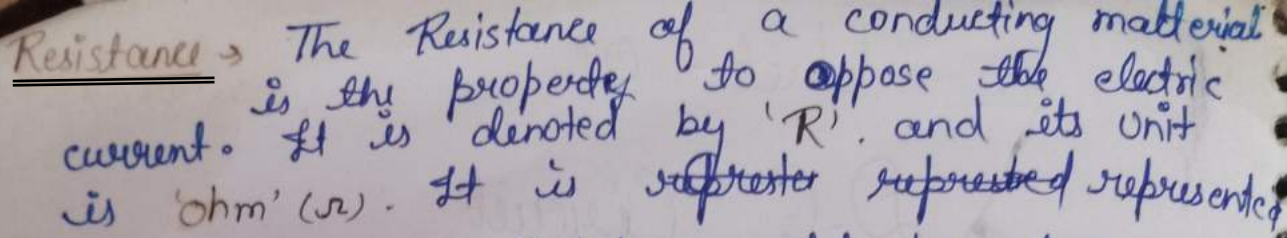 Resistance → The Resistance of a conducting matterial
is the property to oppose the electric
current. It is denoted by 'R'. and its unit
is 'ohm' (Ω). It is represented